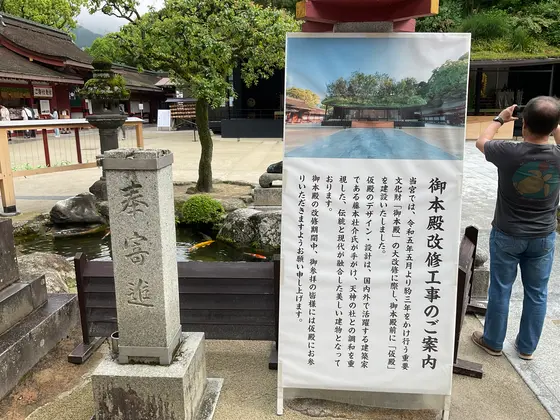 御本殿改修工事のご案内
当宮では、令和五年五月より約三年をかけ行う重要
文化財「御本殿」の大改修に際し、御本殿前に「仮殿」
を建設いたしました。
仮殿のデザイン・設計は、国内外で活躍する建築家
である藤本壮介氏が手がけ、天神の杜との調和を重
視した、伝統と現代が融合した美しい建物となって
おります。
御本殿の改修期間中、御参拝の皆様には仮殿にお参
りいただきますようお願い申し上げます。
奉寄進